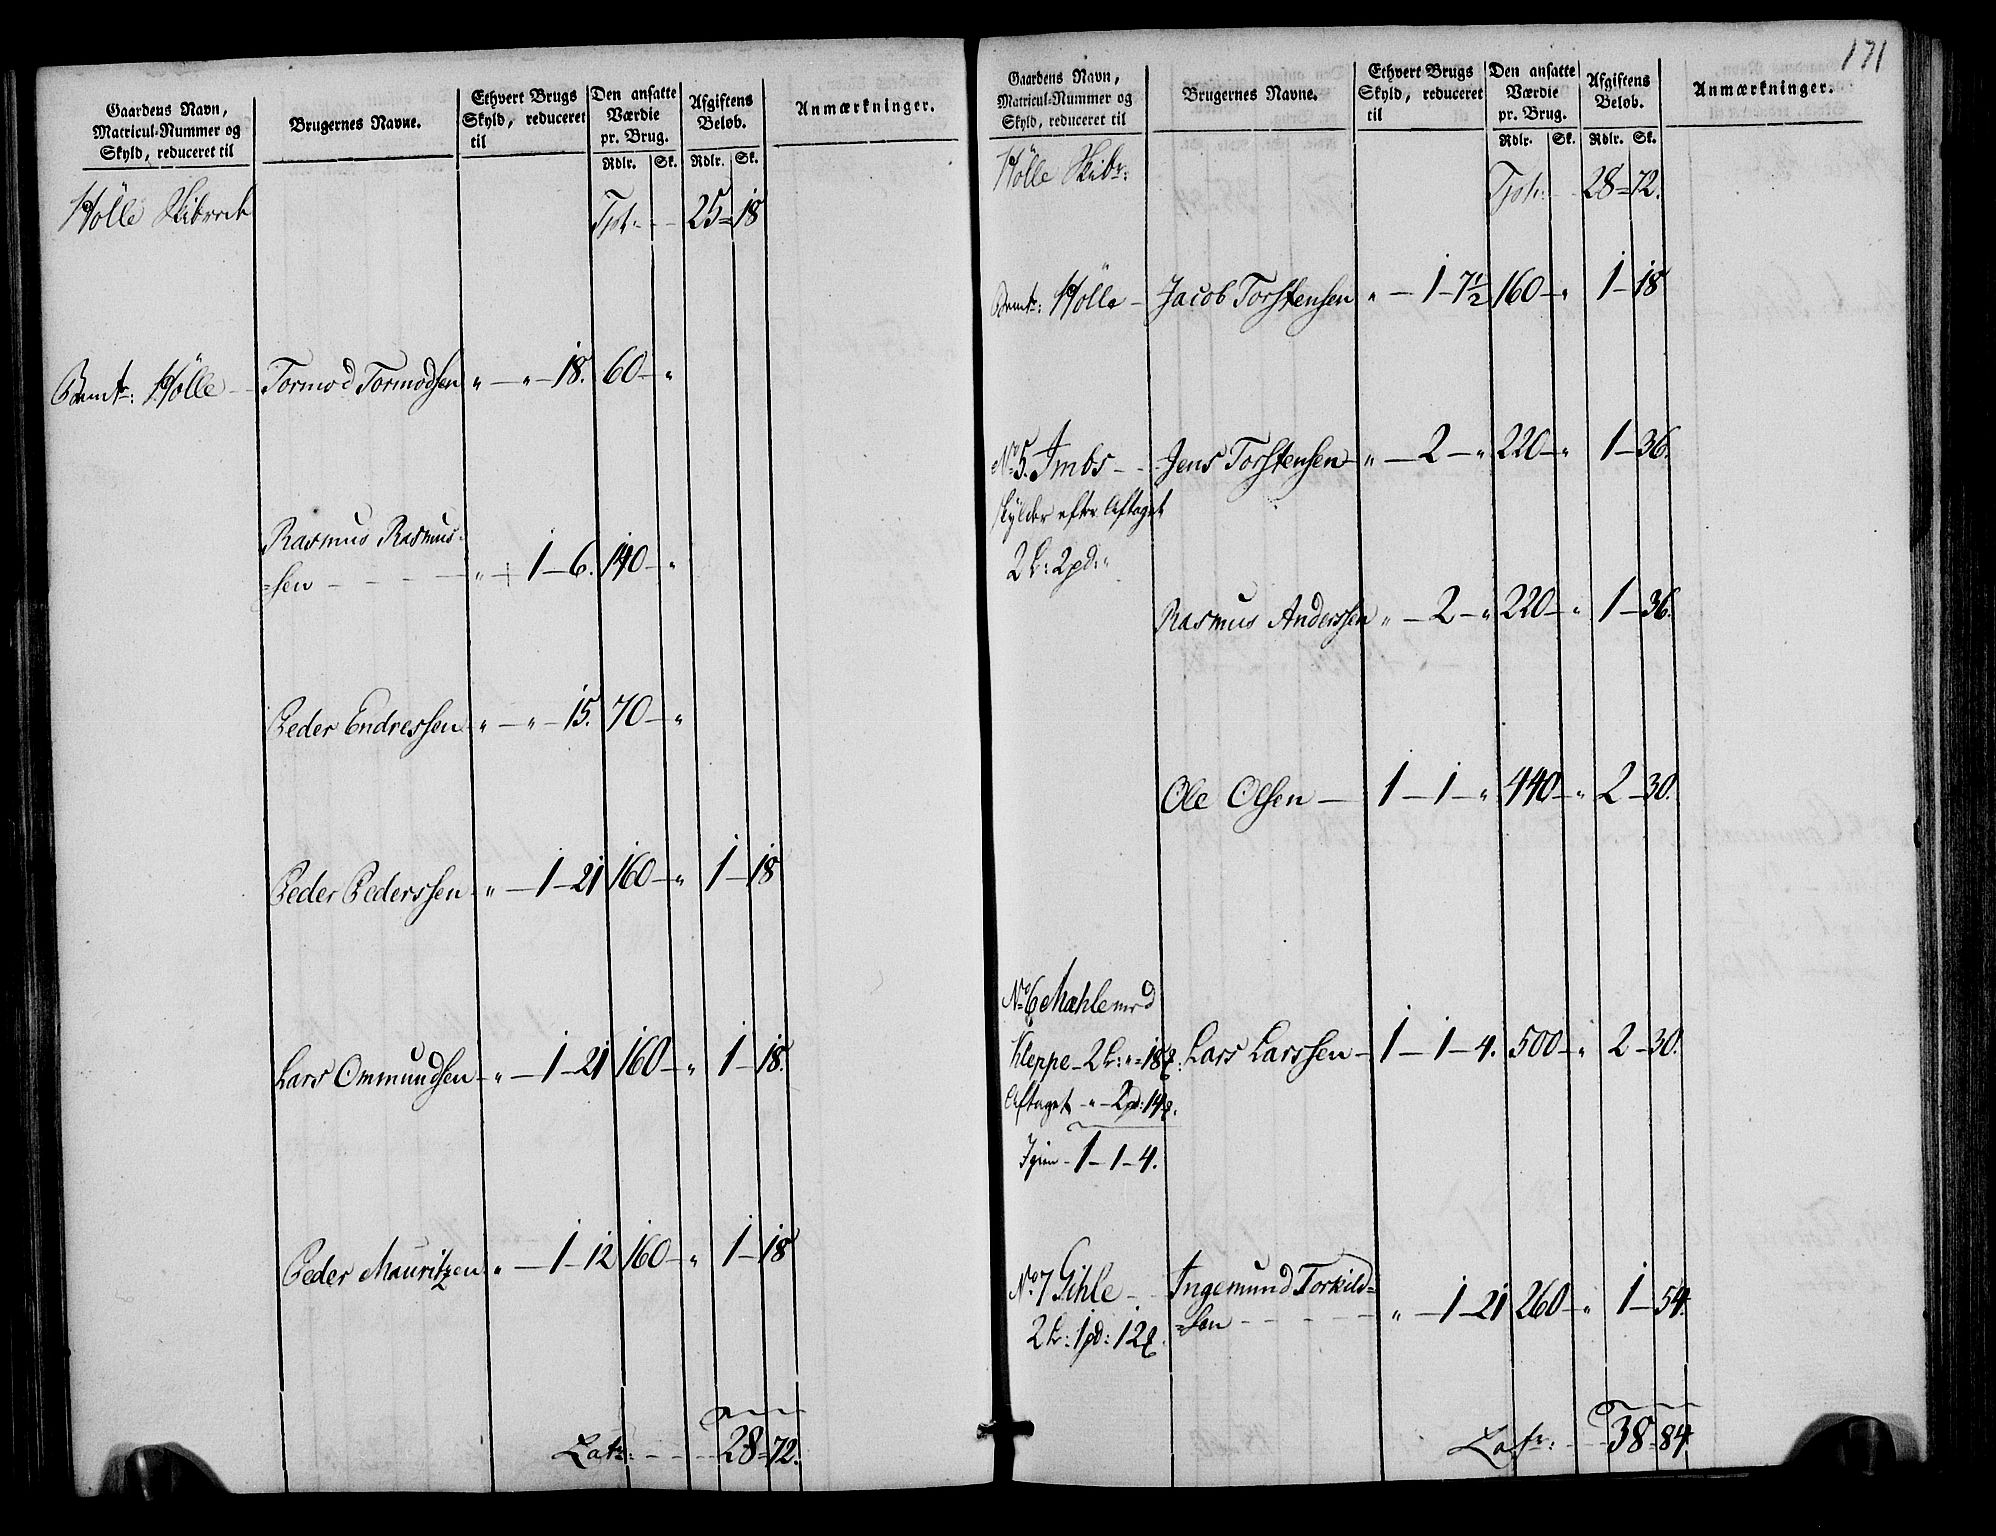 Gaardens Navn,
Matricul-Nummer og
Skyld, reduceret til
Brugernes Navne.
Ethvert Brugs
Skyld, reduceret
til
Den ansatte
Værdie
pr. Brug.
Rdlr. Sk.
Afgiftens
Beløb.
Rdlr. Sk.
Anmærkninger.
Hölle Skibreede
Tpt: - - 25 = 18
Bemt: Hölle - Tormod Tormodsen „ - „ - 18. 60 - „
Rasmus Rasmus-
=sen - - - - „ - 1 - 6. 140 - „
Peder Endressen - „ - „ - 15. 70 - „
Peder Pederssen - „ - 1 - 21 160 - „ 1 - 18
Lars Ommundsen - „ - 1 - 21 160 - „ 1 - 18.
Peder Mauritzen „ - 1 - 12 160 - „ 1 - 18
Latr: - - - 28 = 72.
171
Gaardens Navn,
Matricul-Nummer og
Skyld, reduceret til
Brugernes Navne.
Ethvert Brugs
Skyld, reduceret
til
Den ansatte
Værdie
pr. Brug.
Rdlr. Sk.
Afgiftens
Beløb.
Rdlr. Sk.
Anmærkninger.
Hölle Skibr:
Tpt: - - 28 = 72.
Bemt: Hölle - Jacob Torstensen „ - 1 - 7½ 160 - „ 1 - 18
No 5. Imbs - - Jens Torstensen - „ - 2 - „ 220 - „ 1 - 36.
skylder efter Aftaget
2 L: 2 pd: „
Rasmus Anderssen „ - 2 - „ 220 - „ 1 - 36.
Ole Olsen - 1 - 1 - „ 440 - „ 2 - 30.
No 6 Mæhle med
Kleppe - 2 L: „ - 18 Lars Larssen - 1 - 1 - 4. 500 - „ 2 - 30.
Aftaget - „ - 2 pd: 14
Igien - 1 - 1 - 4.
No 7 Gihle - - Ingemund Torkild=
2 L: 1 pd: 12 =sen - - - - „ - 1 - 21 260 - „ 1 - 54.
Latr: - - 38 = 84